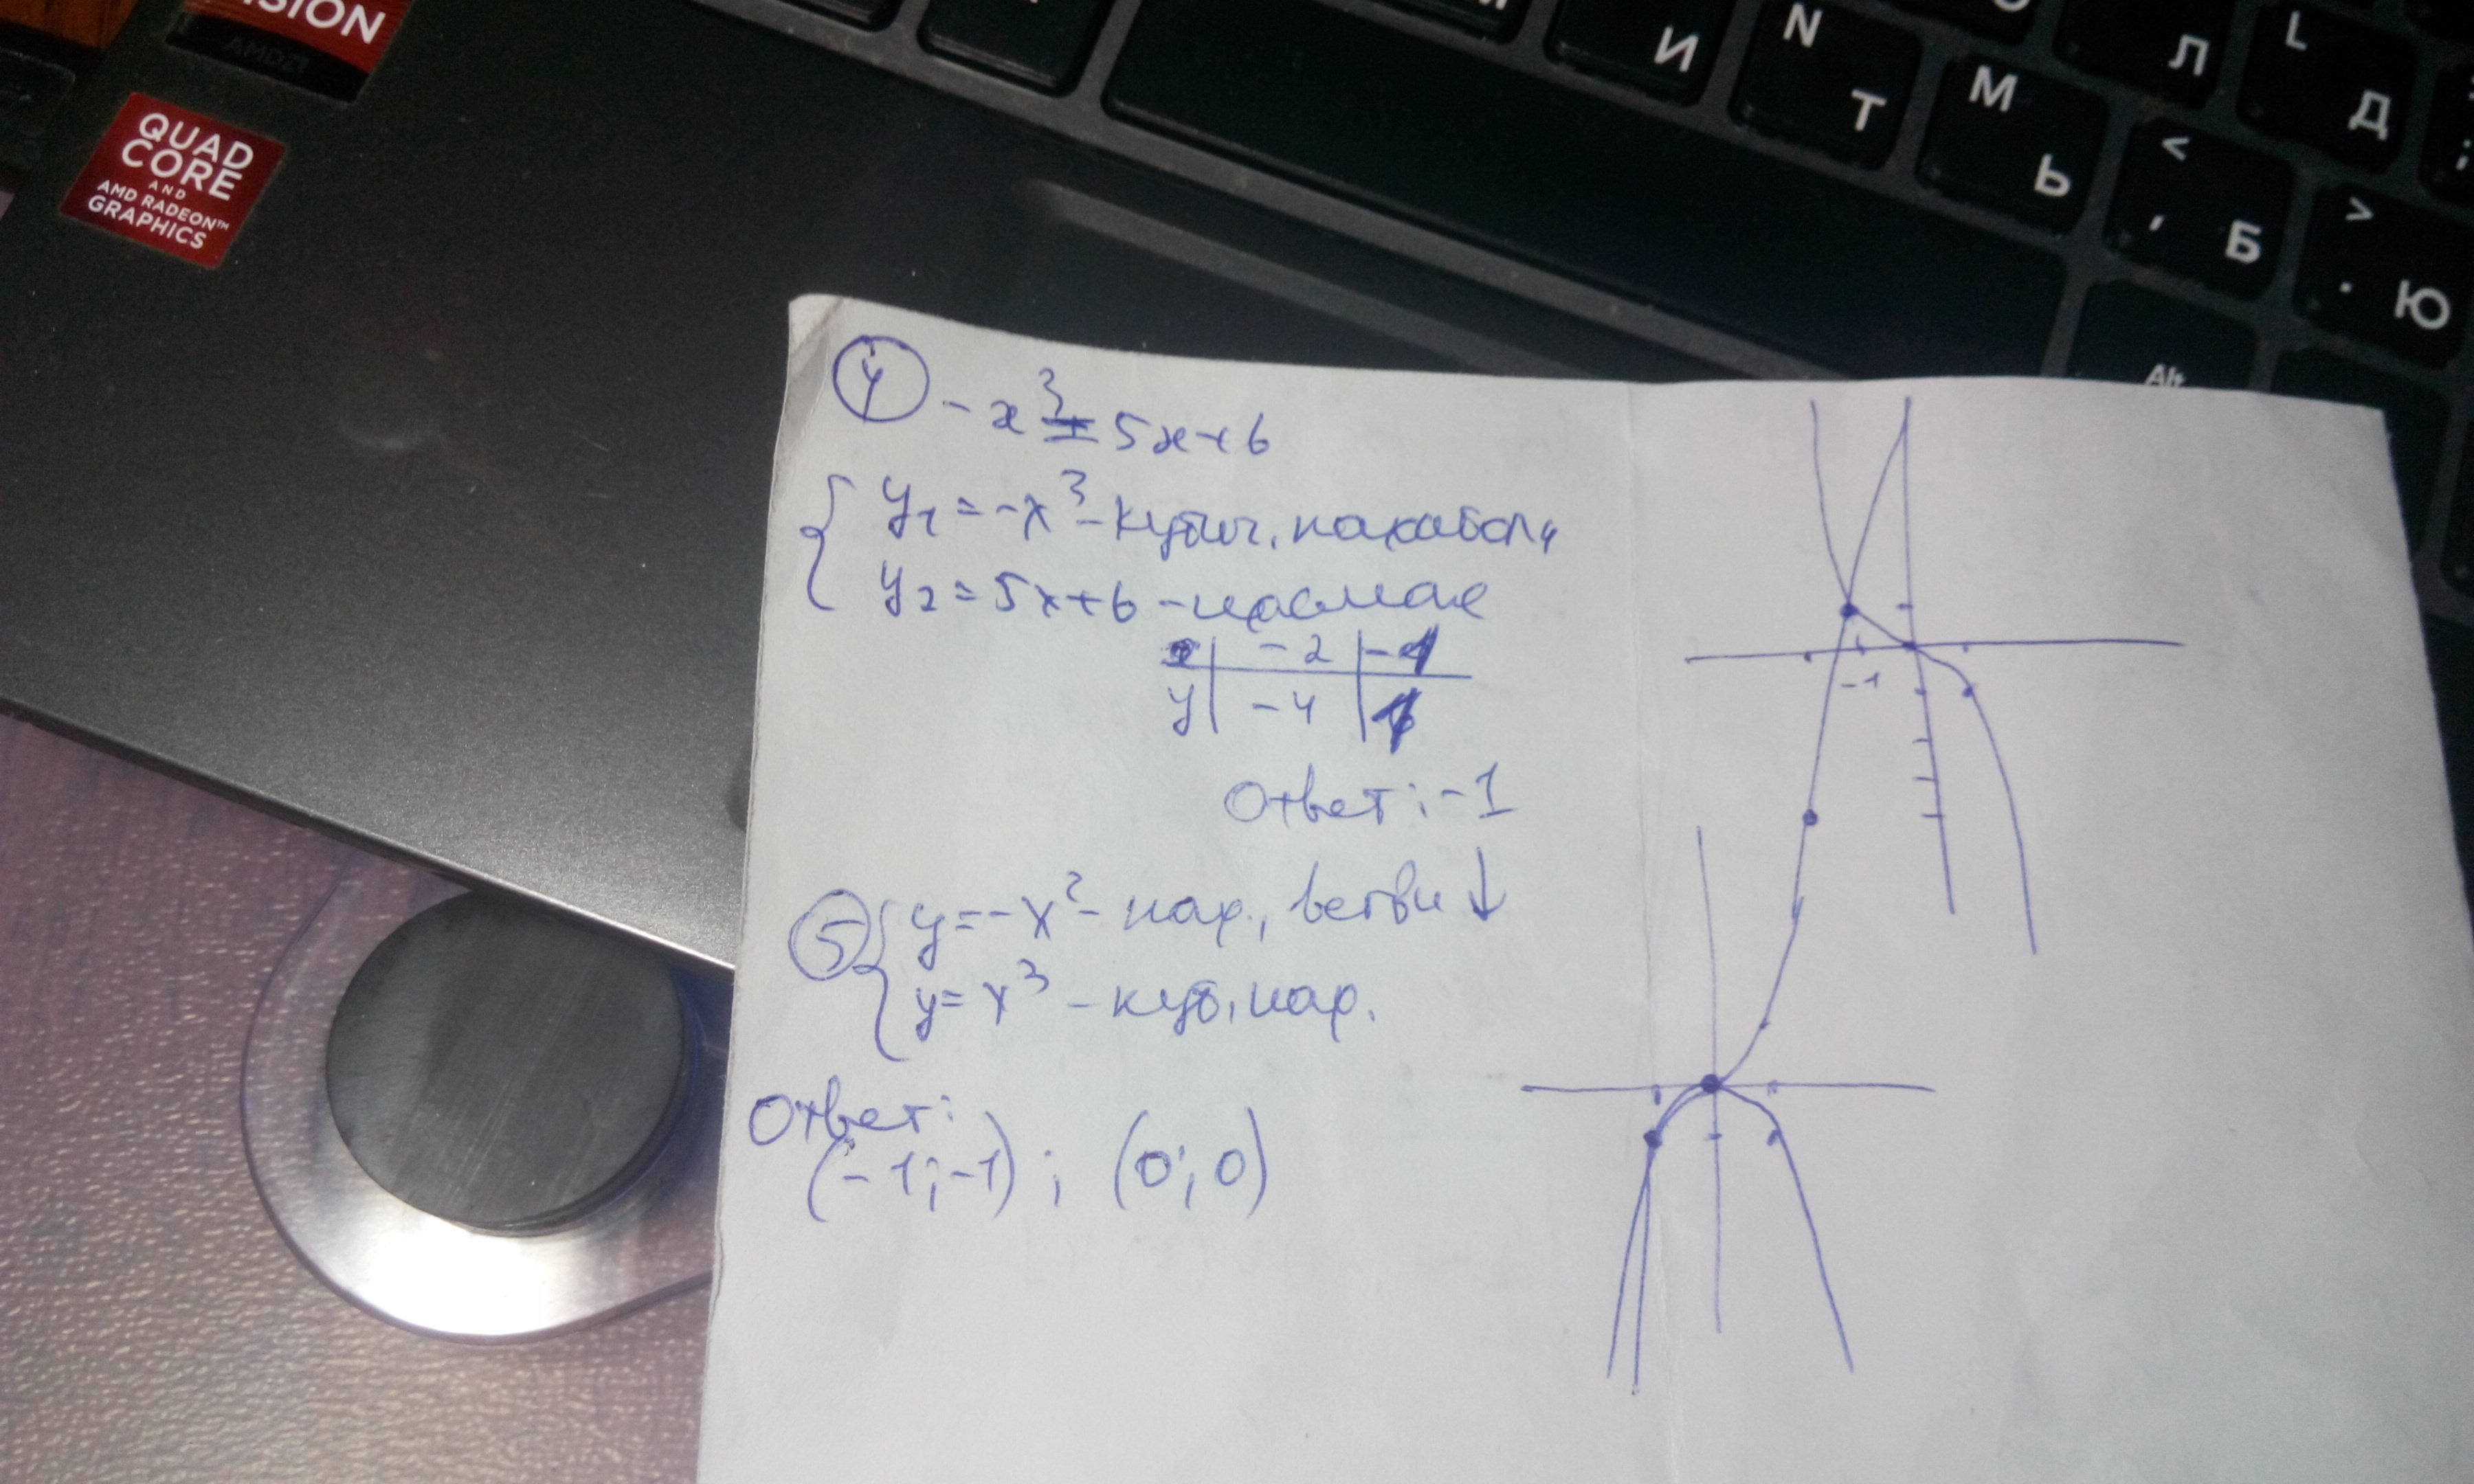 ISION
AMD
QUAD
CORE
AND
AMD RADEON™
GRAPHICS
И
N
Т
M
Ь
Л
L
Д
;
<
,
Б
>
.
Ю
Alt
4
- x³ = 5x+6
y₁ = -x³ - кубич. парабола
y₂ = 5x+6 - прямая
x | -2 | -1
y | -4 | 1
Ответ: -1
-1
5
y = -x² - пар., ветви ↓
y = x³ - куб. пар.
Ответ:
(-1; -1) ; (0; 0)